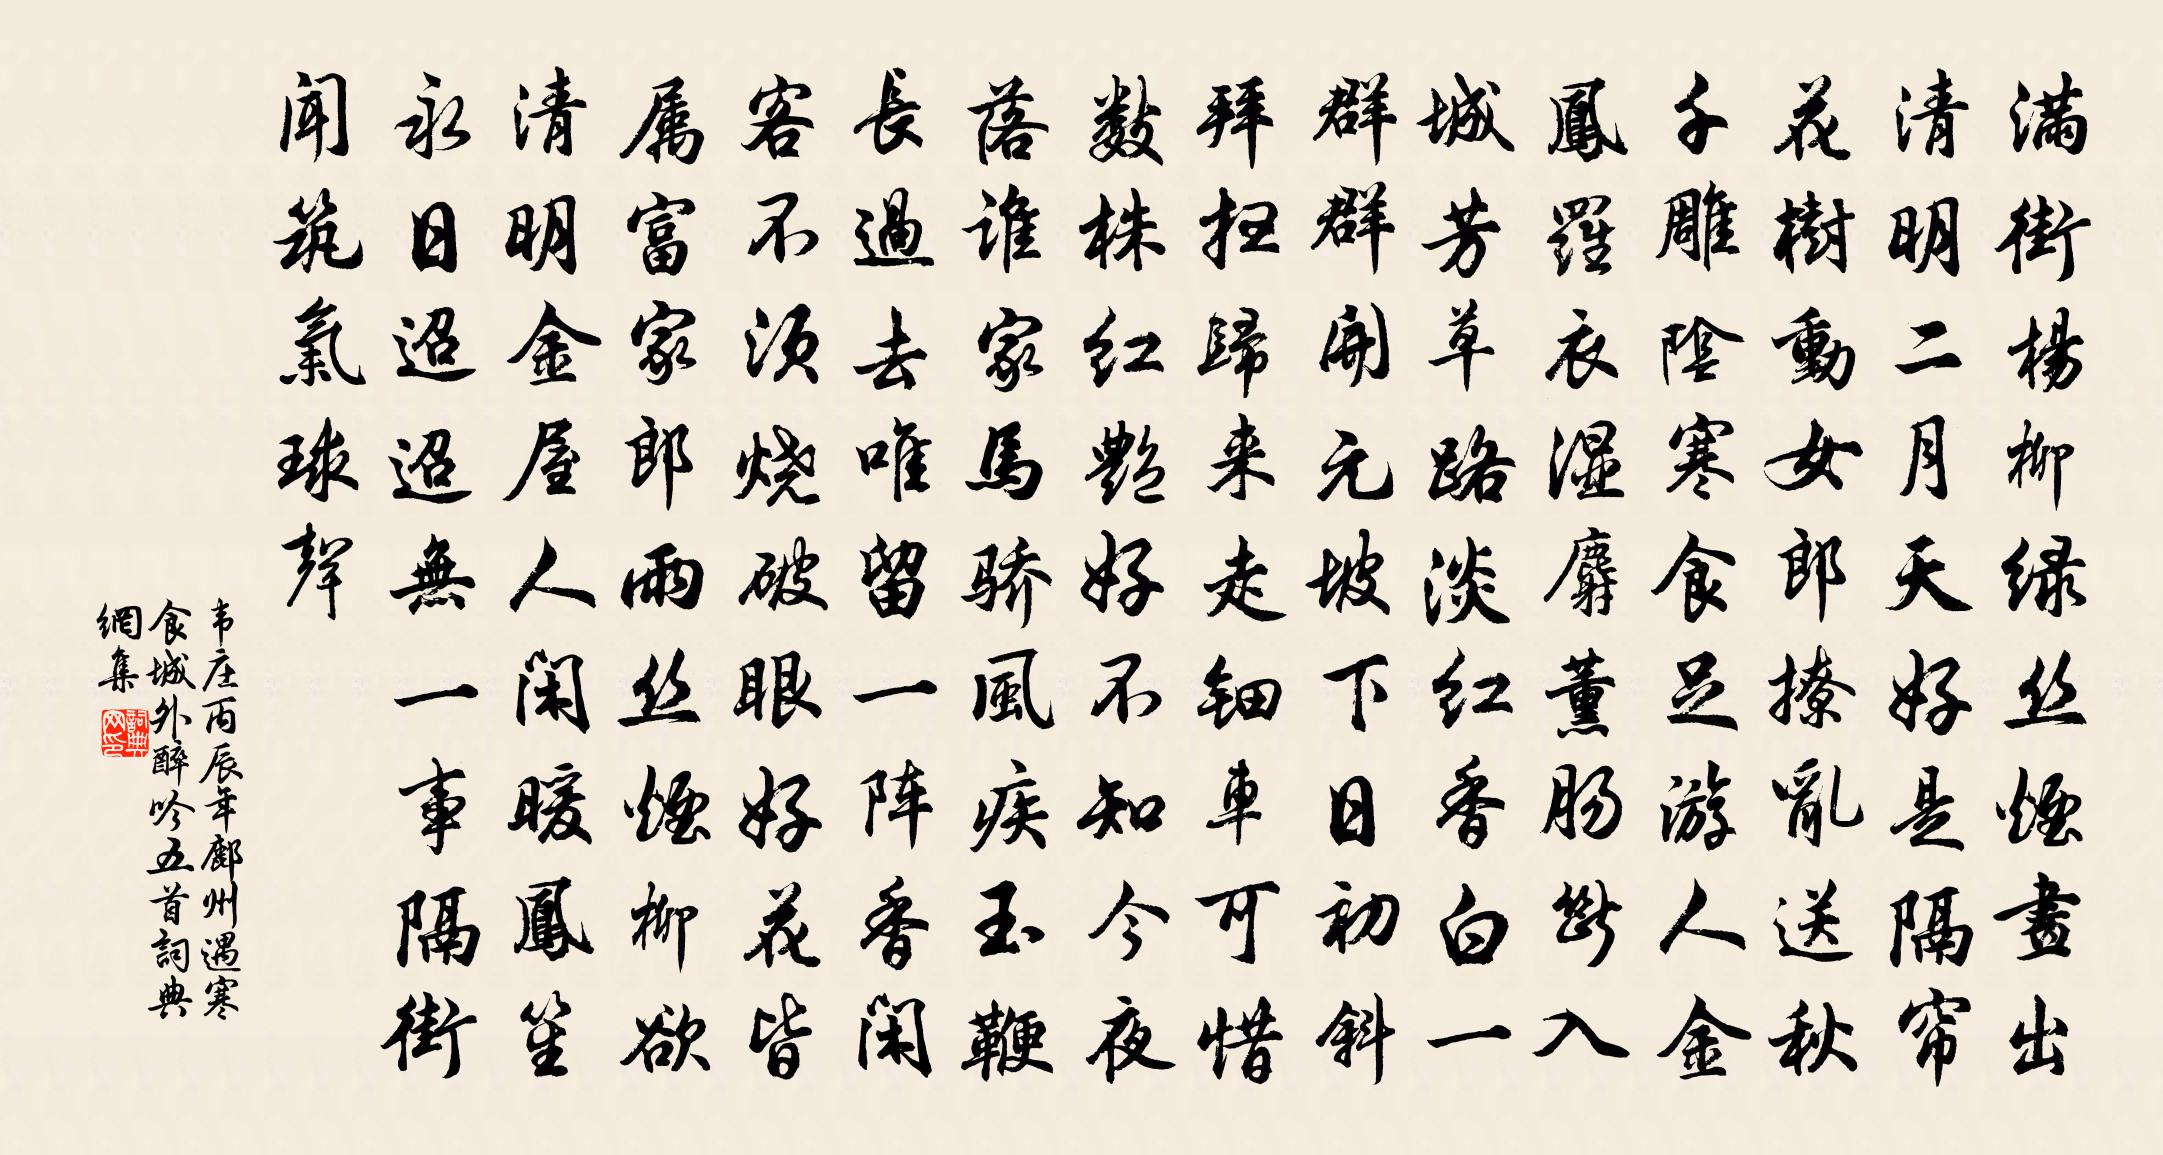 满街楊柳绿丝煙畫出
清明二月天好是隔帘
花樹動女郎撩亂送秋
千雕陰寒食足游人金
鳳羅衣湿麝薰肠斷入
城芳草路淡红香白一
群群開元坡下日初斜
拜扫歸来走钿車可惜
数株红艷好不知今夜
落谁家馬骄風疾玉鞭
長過去唯留一阵香閑
客不须烧破眼好花皆
属富家郎雨丝煙柳欲
清明金屋人閑暖鳳笙
永日迢迢無一事隔街
闻筑氣球聲
韦庄丙辰年鄜州遇寒
食城外醉吟五首詞典
網集
詞典
网印